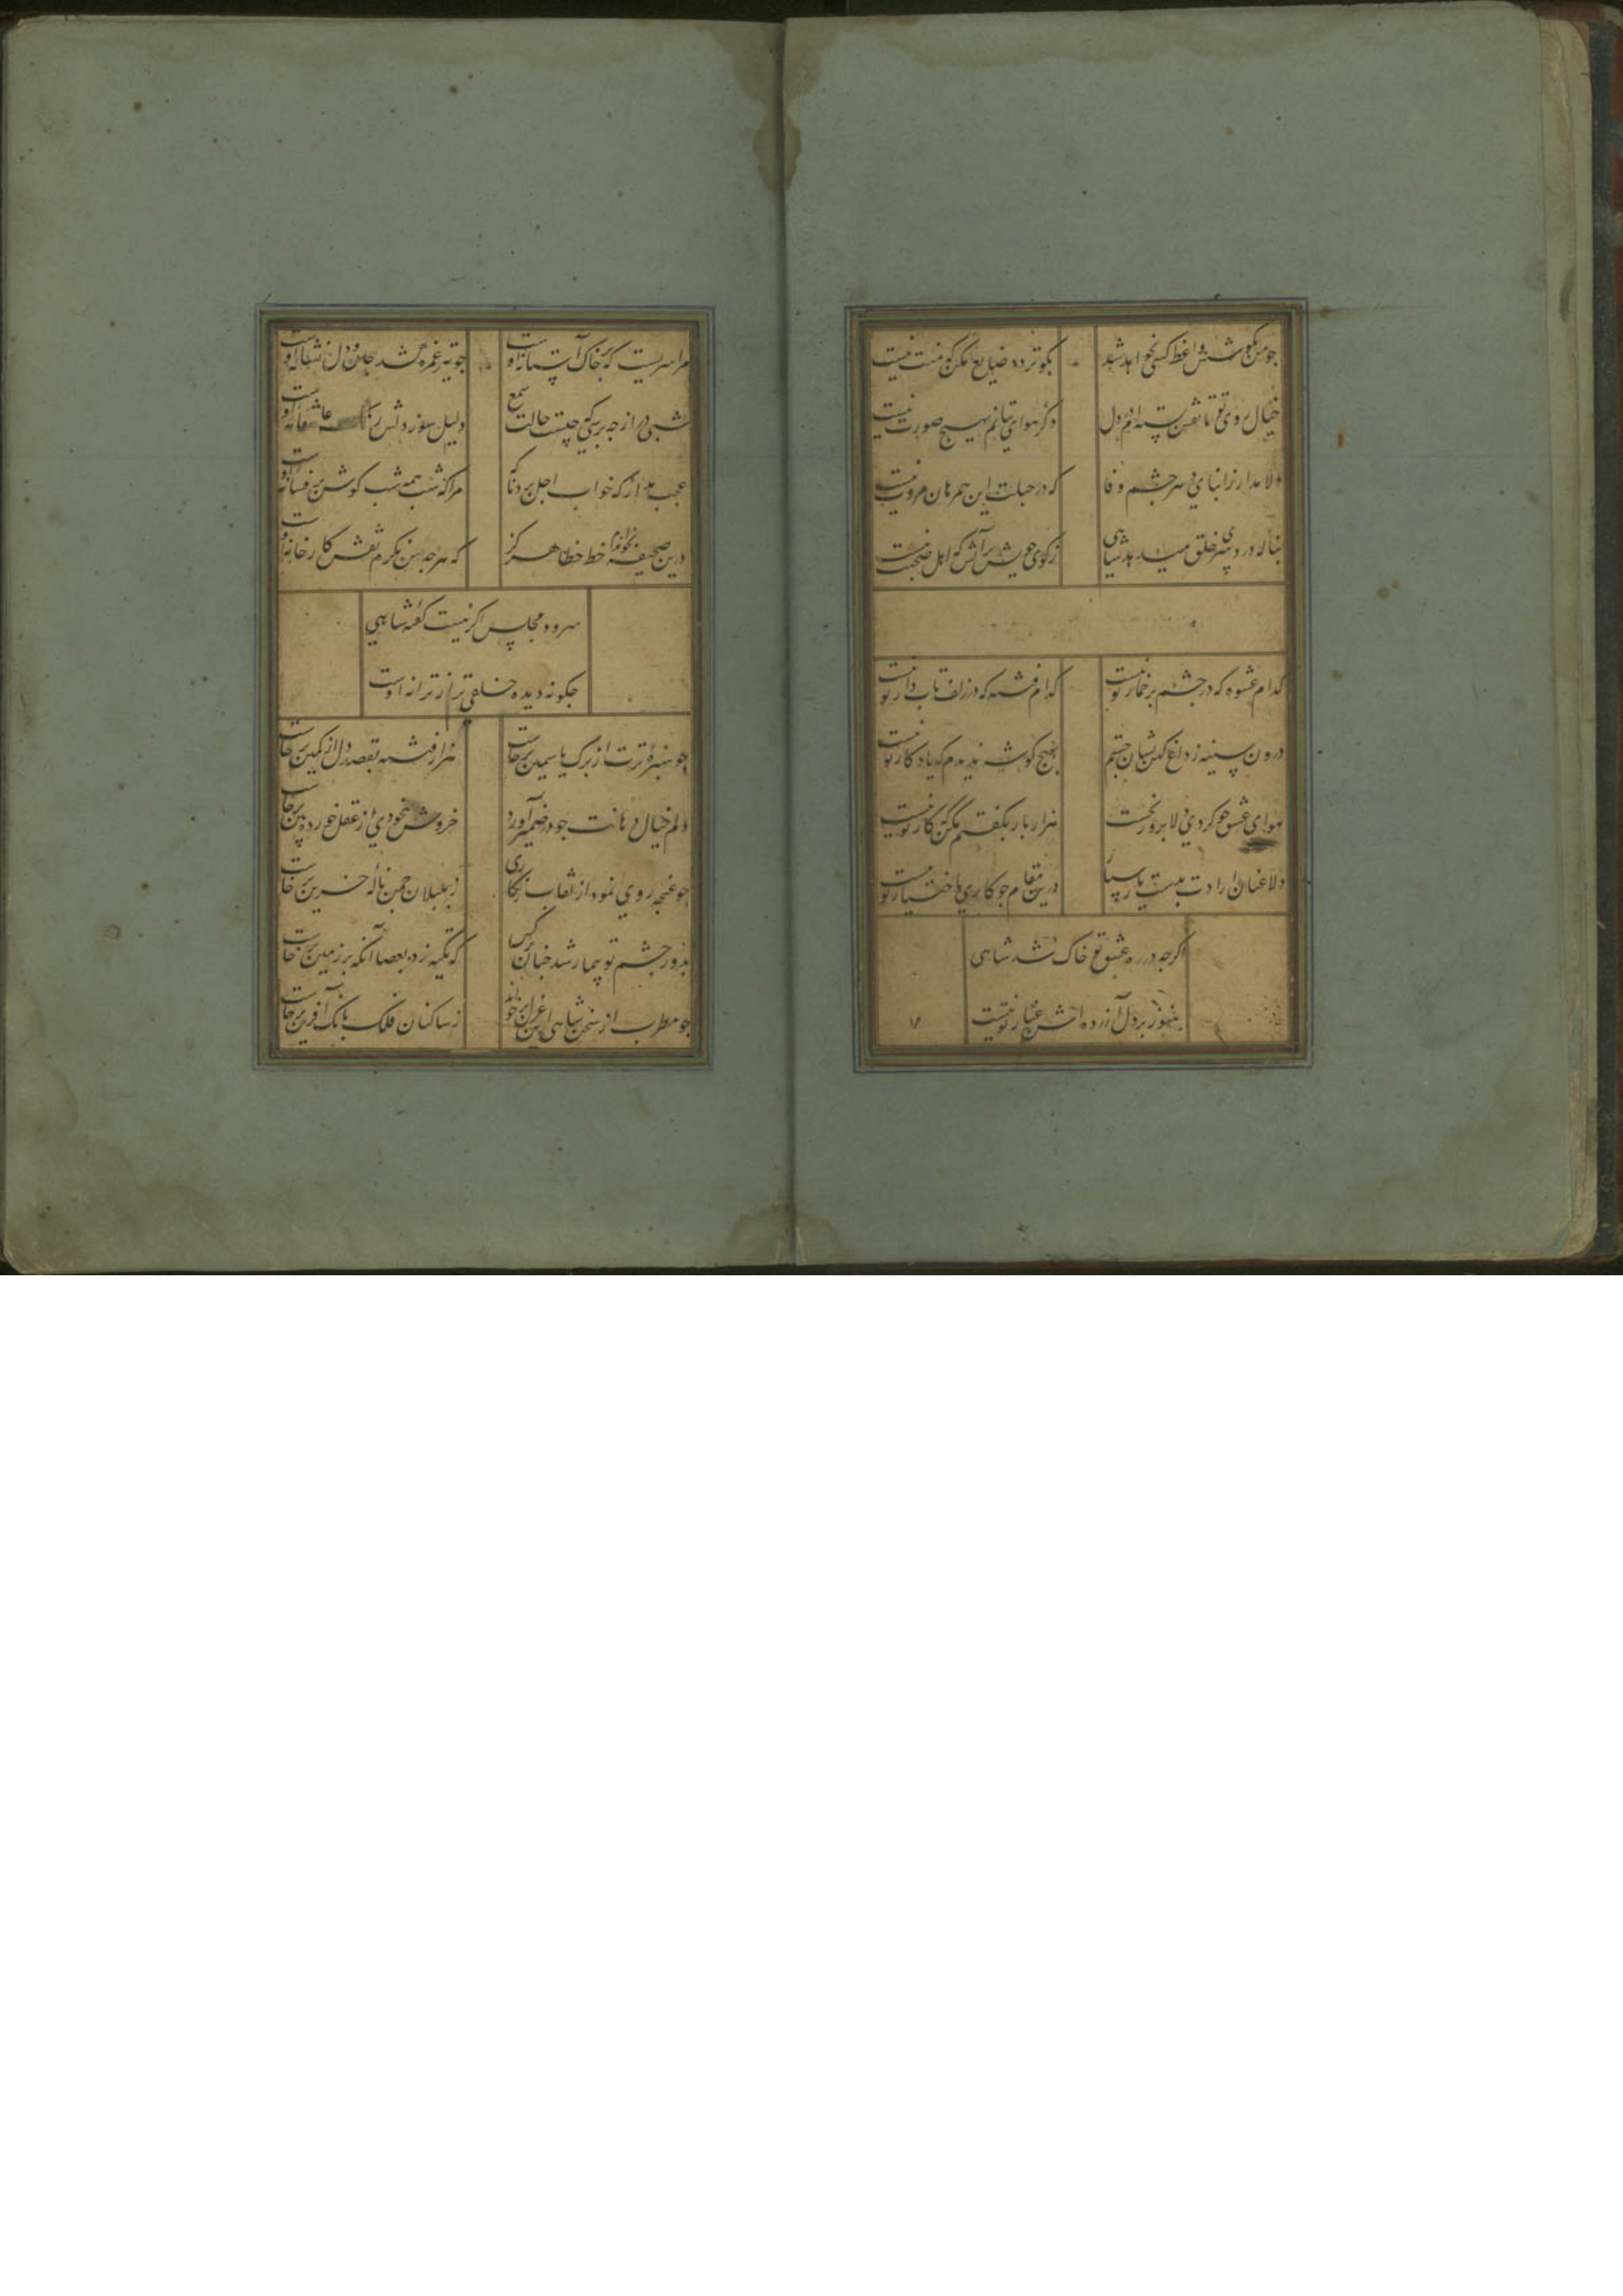 چو من بکوشش واعظ کسی نخواهد شد
بکو تردد ضایع مکن که منت نیست
خیال روی تو تا نقش بسته‌ام در دل
دگر هوای بتانم بهیچ صورت نیست
دلا مدار ز ابنای دهر چشم وفا
که در جبلت این همرهان مروت نیست
بناله درد سر خلق میدهد شاهی
ز کوی خویش برانش که اهل صحبت نیست
کدام عشوه که در چشم پر خمار تو نیست
کدام فتنه که در زلف تابدار تو نیست
درون سینه ز داغ کهن نشان جستم
بهیچ گوشه ندیدم که یادکار تو نیست
هوای عشق چو کردی دلا برو
هزار بار بکفتم مکن که کار تو نیست
دلا عنان ارادت بدست یار سپار
درین مقام چو کاری باختیار تو نیست
اگرچه در ره عشق تو خاک شد شاهی
هنوز بر دل آزرده‌اش غبار تو نیست
مرا سریست که بر خاک آستانه اوست
چو تیر غمزه کشد جان و دل نشانه اوست
شبی دراز چه پرسی که چیست حالت شمع
دلیل سوز دلش عاشقانه اوست
عجب مدار که خواب اجل برد ناگه
مرا که شب همه شب گوش بر فسانه اوست
درین صحیفه نخواندم خط خطا هرگز
که هرچه می‌نگرم نقش کارخانه اوست
سرود مجلس اگر نیست گفته شاهی
چگونه دیده خلقی تر از ترانه اوست
چو سبزهٔ ترت از برگ یاسمین برخاست
هزار فتنه بقصد دل از کمین برخاست
دلم خیال دهانت چو در ضمیر آورد
خروش بیخودی از عقل خورده‌بین برخاست
چو غنچه روی نمود از نقاب زنگاری
ز بلبلان چمن ناله حزین برخاست
بدور چشم تو بیمار شد چنان نرگس
که تکیه زد بعصا آنکه بر زمین برخاست
چو مطرب از سخن شاهی این غزل برخواند
ز ساکنان فلک بانک آفرین برخاست